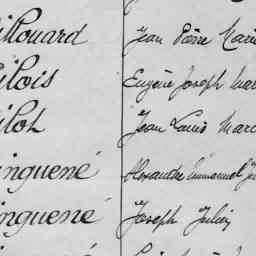 illouard Jean Pierre Marie
ilois Eugène Joseph Mar
ilot Jean Louis Marc
inguené Alexandre Emmanuel
inguené Joseph Julien